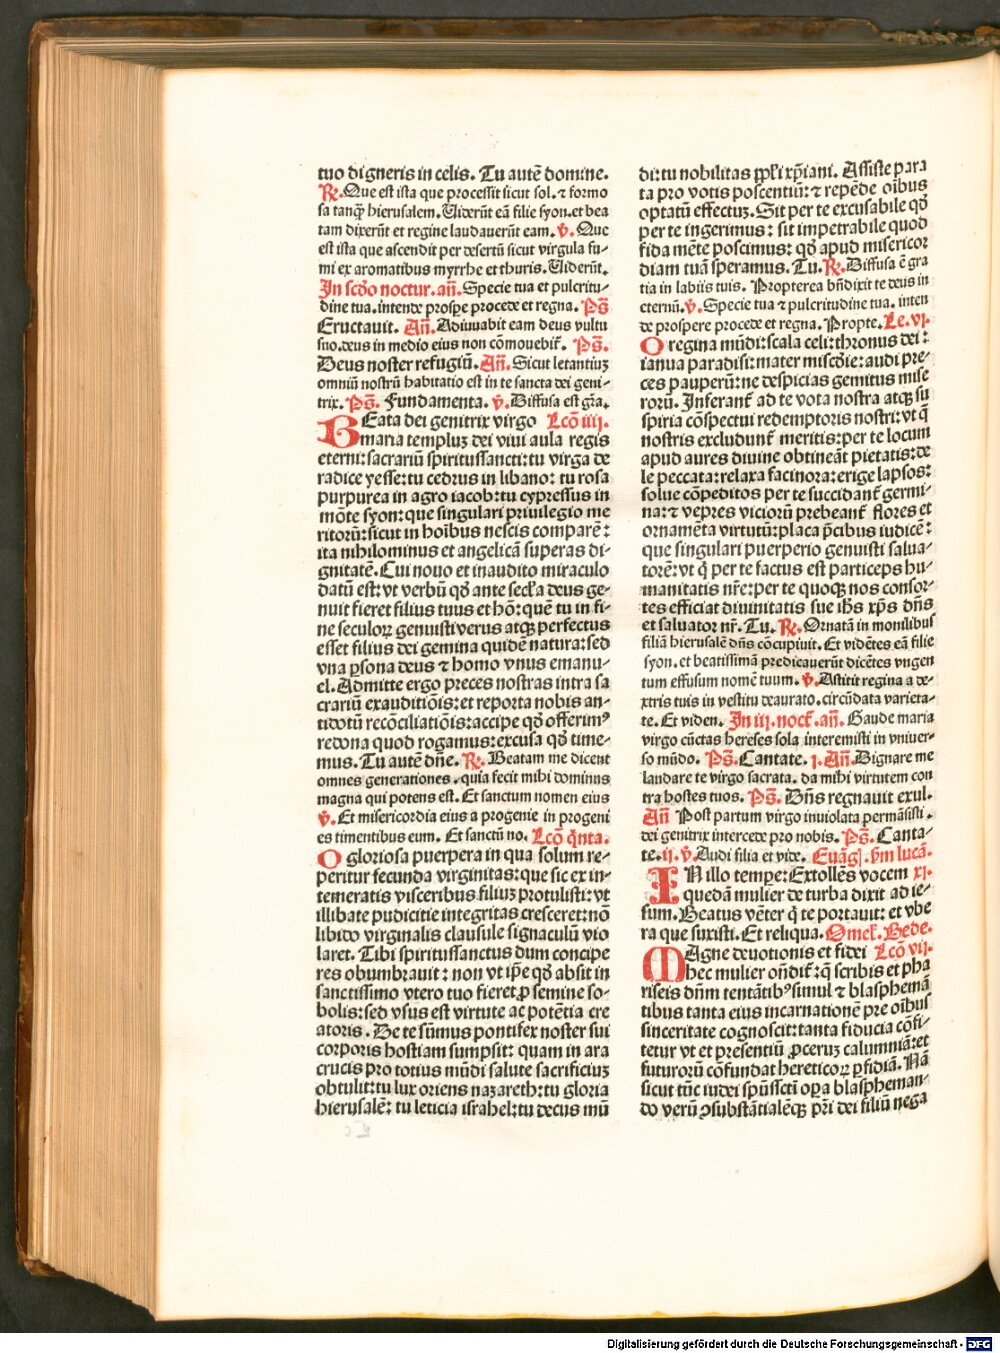 tuo digneris in celis. Tu autē domine.
℟. Que est ista que processit sicut sol. ⁊ formo
sa tanqȝ hierusalem. Uiderūt eā filie syon. et bea
tam dixerūt et regine laudauerūt eam. ℣. Que
est ista que ascendit per desertū sicut virgula fu⸗
mi ex aromatibus myrrhe et thuris. Uiderūt.
In scdo noctur. an̄. Specie tua et pulcritu⸗
dine tua. intende prospe procede et regna. Ps̄
Eructauit. An̄. Adiuuabit eam deus vultu
suo. deus in medio eius non cōmouebit̄. Ps̄.
Deus noster refugiū. An̄. Sicut letantiuȝ
omniū nostrū habitatio est in te sancta dei geni⸗
trix. Ps̄. Fundamenta. ℣. Diffusa est gr̄a.
BEata dei genitrix virgo Lcō iiij.
maria templuȝ dei viui aula regis
eterni: sacrariū spiritussancti: tu virga de
radice yesse: tu cedrus in libano: tu rosa
purpurea in agro iacob: tu cypressus in
mōte syon: que singulari priuilegio me
ritorū: sicut in hoībus nescis comparē:
ita nihilominus et angelicā superas di⸗
gnitatē. Cui nouo et inaudito miraculo
datū est: vt verbū qd̄ ante secl̄a deus ge⸗
nuit fieret filius tuus et hō: quē tu in fi⸗
ne seculoꝝ genuisti verus atqȝ perfectus
esset filius dei gemina quidē natura: sed
vna ꝑsona deus ⁊ homo vnus emanu⸗
el. Admitte ergo preces nostras intra sa
crariū exauditiōis: et reporta nobis an⸗
tidotū recōciliatiōis: accipe qd̄ offerimꝰ
redona quod rogamus: excusa qd̄ time⸗
mus. Tu autē dn̄e. ℟. Beatam me dicent
omnes generationes. quia fecit mihi dominus
magna qui potens est. Et sanctum nomen eius
℣. Et misericordia eius a progenie in progeni
es timentibus eum. Et sanctū no. Lcō q̄nta.
O gloriosa puerpera in qua solum re⸗
peritur fecunda virginitas: que sic ex in⸗
temeratis visceribus filiuȝ protulisti: vt
illibate pudicitie integritas cresceret: nō
libido virginalis clausule signaculū vio
laret. Tibi spiritussanctus dum concipe
res obumbrauit: non vt ip̄e qd̄ absit in
sanctissimo vtero tuo fieret ꝓ semine so⸗
bolis: sed vsus est virtute ac potētia cre
atoris. De te sūmus pontifex noster sui
corporis hostiam sumpsit: quam in ara
crucis pro totius mūdi salute sacrificiuȝ
obtulit: tu lux oriens nazareth: tu gloria
hierusalē: tu leticia israhel: tu decus mū
di: tu nobilitas ppl̄i xp̄iani. Assiste para
ta pro votis poscentiū: ⁊ repēde oībus
optatū effectuȝ. Sit per te excusabile qd̄
per te ingerimus: sit impetrabile quod
fida mēte poscimus: qd̄ apud misericor
diam tuā speramus. Tu. ℟. Diffusa ē gra
tia in labijs tuis. Propterea bn̄dixit te deus in
eternū. ℣. Specie tua ⁊ pulcritudine tua. inten
de prospere procede et regna. Propte. Le. vi.
O regina mūdi: scala celi: thronus dei:
ianua paradisi: mater miscdie: audi pre⸗
ces pauperū: ne despicias gemitus mise
rorū. Inferant̄ ad te vota nostra atqȝ su
spiria cōspectui redemptoris nostri: vt q̄
nostris excludunt̄ meritis: per te locum
apud aures diuine obtineāt pietatis: de
le peccata: relaxa facinora: erige lapsos:
solue cōpeditos per te succidant̄ germi⸗
na: ⁊ vepres viciorū prebeant̄ flores et
ornamēta virtutū: placa p̄cibus iudicē:
que singulari puerperio genuisti salua⸗
torē: vt q̄ per te factus est particeps hu⸗
manitatis nr̄e: per te quoqȝ nos consor⸗
tes efficiat diuinitatis sue ihs̄ xp̄s dn̄s
et saluator nr̄. Tu. ℟. Ornatā in monilibus
filiā hierusalē dn̄s cōcupiuit. Et vidētes eā filie
syon. et beatissimā predicauerūt dicētes vngen
tum effusum nomē tuum. ℣. Astitit regina a de⸗
xtris tuis in vestitu deaurato. circūdata varieta⸗
te. Et viden. In iij. noct̄. an̄. Gaude maria
virgo cūctas hereses sola interemisti in vniuer⸗
so mūdo. Ps̄. Cantate. i. An̄. Dignare me
laudare te virgo sacrata. da mihi virtutem con
tra hostes tuos. Ps̄. Dn̄s regnauit exul.
An̄ Post partum virgo inuiolata permāsisti.
dei genitrix intercede pro nobis. Ps̄. Canta⸗
te. ij. ℣. Audi filia et vide. Euāgl. ẜm lucā.
IN illo tempe: Extollēs vocem xi.
quedā mulier de turba dixit ad ie⸗
sum. Beatus vēter q̄ te portauit: et vbe
ra que suxisti. Et reliqua. Omel̄. Bede.
MAgne deuotionis et fidei Lcō vij.
hec mulier ōndit̄: q̄ scribis et pha
riseis dn̄m tentātibꝰ simul ⁊ blasphemā
tibus tanta eius incarnationē pre oībus
sinceritate cognoscit: tanta fiducia cōfi⸗
tetur vt et presentiū ꝓceruȝ calumniā: et
futurorū cōfundat hereticoꝝ ꝑfidiā. Nā
sicut tūc iudei spūssct̄i oꝑa blaspheman⸗
do verū ꝯsubstātialēqȝ pr̄i dei filiū nega
Digitalisierung gefördert durch die Deutsche Forschungsgemeinschaft - DFG